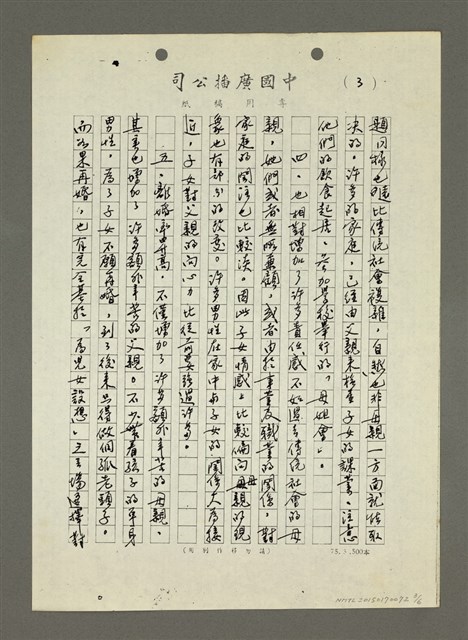 中國廣播公司
(3)
專用稿紙
題同樣也遠比傳統社會複雜，自然也非母親一方面就能取
決的。許多的家庭，已經由父親來檢查子女的課業、注意
他們的飲食起居、參加學校舉行的「母姐會」。
四、也相對增加了許多責任感不如過去傳統社會的母
親，她們或者無所兼顧，或者由於事業及職業的關係，對
家庭的關注也比較淡。因此子女情感上比較偏向母親的現
象也有部分的改變。許多男性在家中與子女的關係大為接
近，子女對父親的向心力比從前要強過許多。
五、離婚率昇高，不僅增加了許多額外辛苦的母親，
其實也增加了許多額外辛苦的父親。不少帶着孩子的單身
男性，為了子女不願再婚，到了後來只得做個孤老頭子。
而如果再婚，也有完全基於「為兒女設想」之立場選擇對
(請勿移作別用)
75.5.500本
NMTL20150170072 3/6